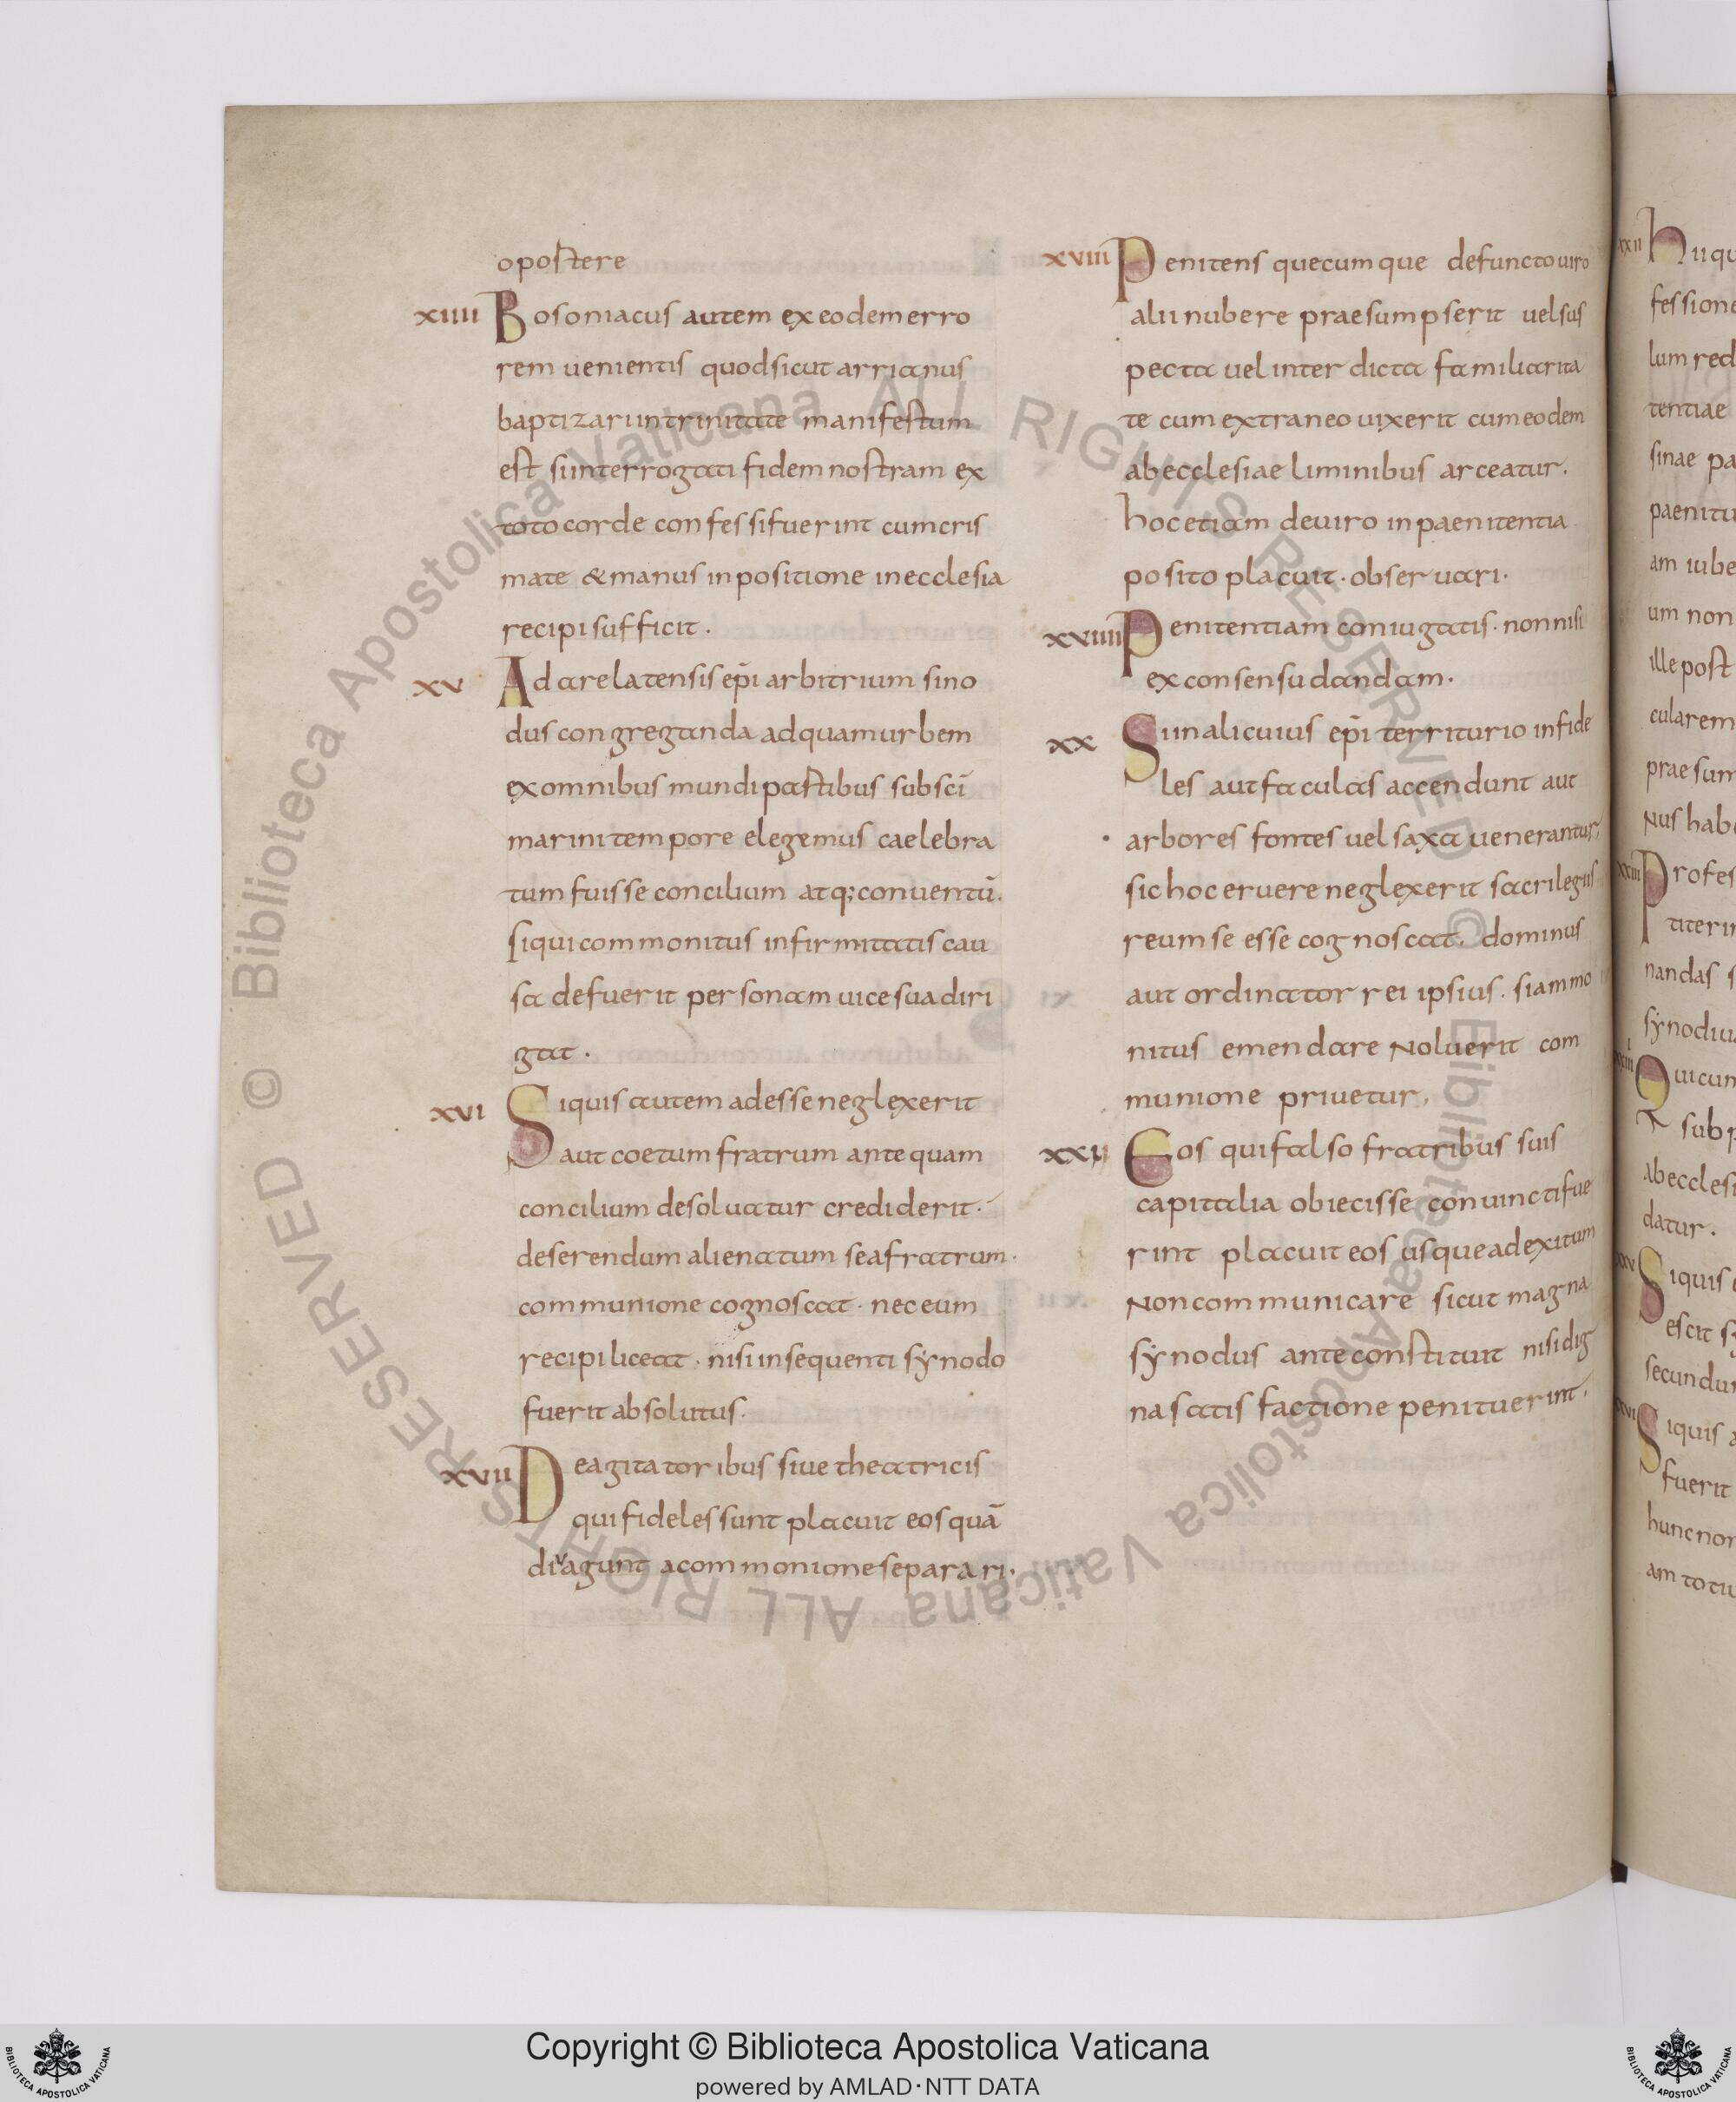 opostere
xiiii Bosoniacus autem ex eodem erro
rem uenientis quod sicut arrianus
baptizari in trinitate manifestum
est si interrogati fidem nostram ex
toto corde confessi fuerint cum cris
mate & manus inpositione in ecclesia
recipi sufficit.
xv Ad arelatensis ep̄i arbitrium sino
dus congreganda ad quam urbem
ex omnibus mundi pastibus sub sc̄i
marini tempore elegemus caelebra
tum fuisse concilium atq; conuentū.
siqui commonitus infirmitatis cau
sa defuerit personam uice sua diri
gat.
xvi Siquis autem adesse neglexerit
aut coetum fratrum antequam
concilium desoluatur crediderit.
deserendum alienatum se a fratrum.
communione cognoscat. nec eum
recipi liceat. nisi in sequenti sẏnodo
fuerit absolutus.
xvii De agitatoribus siue theatricis
qui fideles sunt placuit eos quā
diu agunt a commonione separari.
xviii Penitens quecumque defuncto uiro
alii nubere praesumpserit uel sus
pecta uel interdicta familiarita
te cum extraneo uixerit cum eodem
ab ecclesiae liminibus arceatur.
hoc etiam de uiro in paenitentia
posito placuit. obseruari.
xviiii Penitentiam coniugatis. non nisi
ex consensu dandam.
xx Si in alicuius ep̄i territurio infide
les aut faculas accendunt aut
arbores fontes uel saxa uenerantur,
sic hoc eruere neglexerit sacrilegiis
reum se esse cognoscat. dominus
aut ordinator rei ipsius. si ammo
nitus emendare Noluerit com
munione priuetur,
xxi Eos qui falso fratribus suis
capitalia obiecisse conuincti fue
rint placuit eos usque ad exitum
Non communicare sicut magna
sẏnodus ante constituit nisi dig
na satisfactione penituerint.
xxii hii qu
fessione
lum red
tentiae
sinae pa
paenitu
am iube
um non
ille post
cularem
prae sum
Nus hab
xxiii Profes
titerin
nandas s
sẏnodiu
xxiiii Quicum
sub p
ab eccles
datur.
xxv Siquis
escit sẏ
secundu
xxvi Siquis a
fuerit
hunc non
am totu
© Biblioteca Apostolica Vaticana ALL RIGHTS RESERVED © Biblioteca Apostolica Vaticana ALL RIGHTS RESERVED
Copyright © Biblioteca Apostolica Vaticana
powered by AMLAD·NTT DATA
BIBLIOTECA APOSTOLICA VATICANA
BIBLIOTECA APOSTOLICA VATICANA